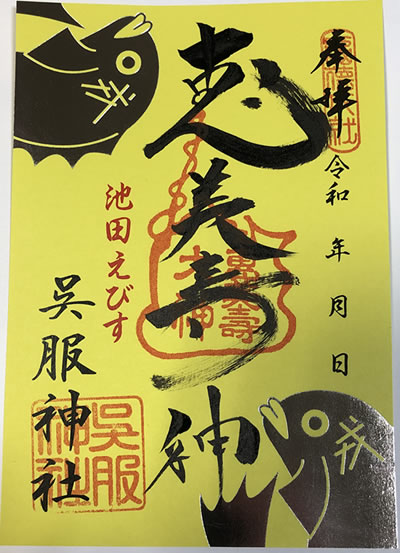 奉拝
令和 年 月 日
恵美寿神
池田えびす
呉服神社
呉服
神社
戎
戎